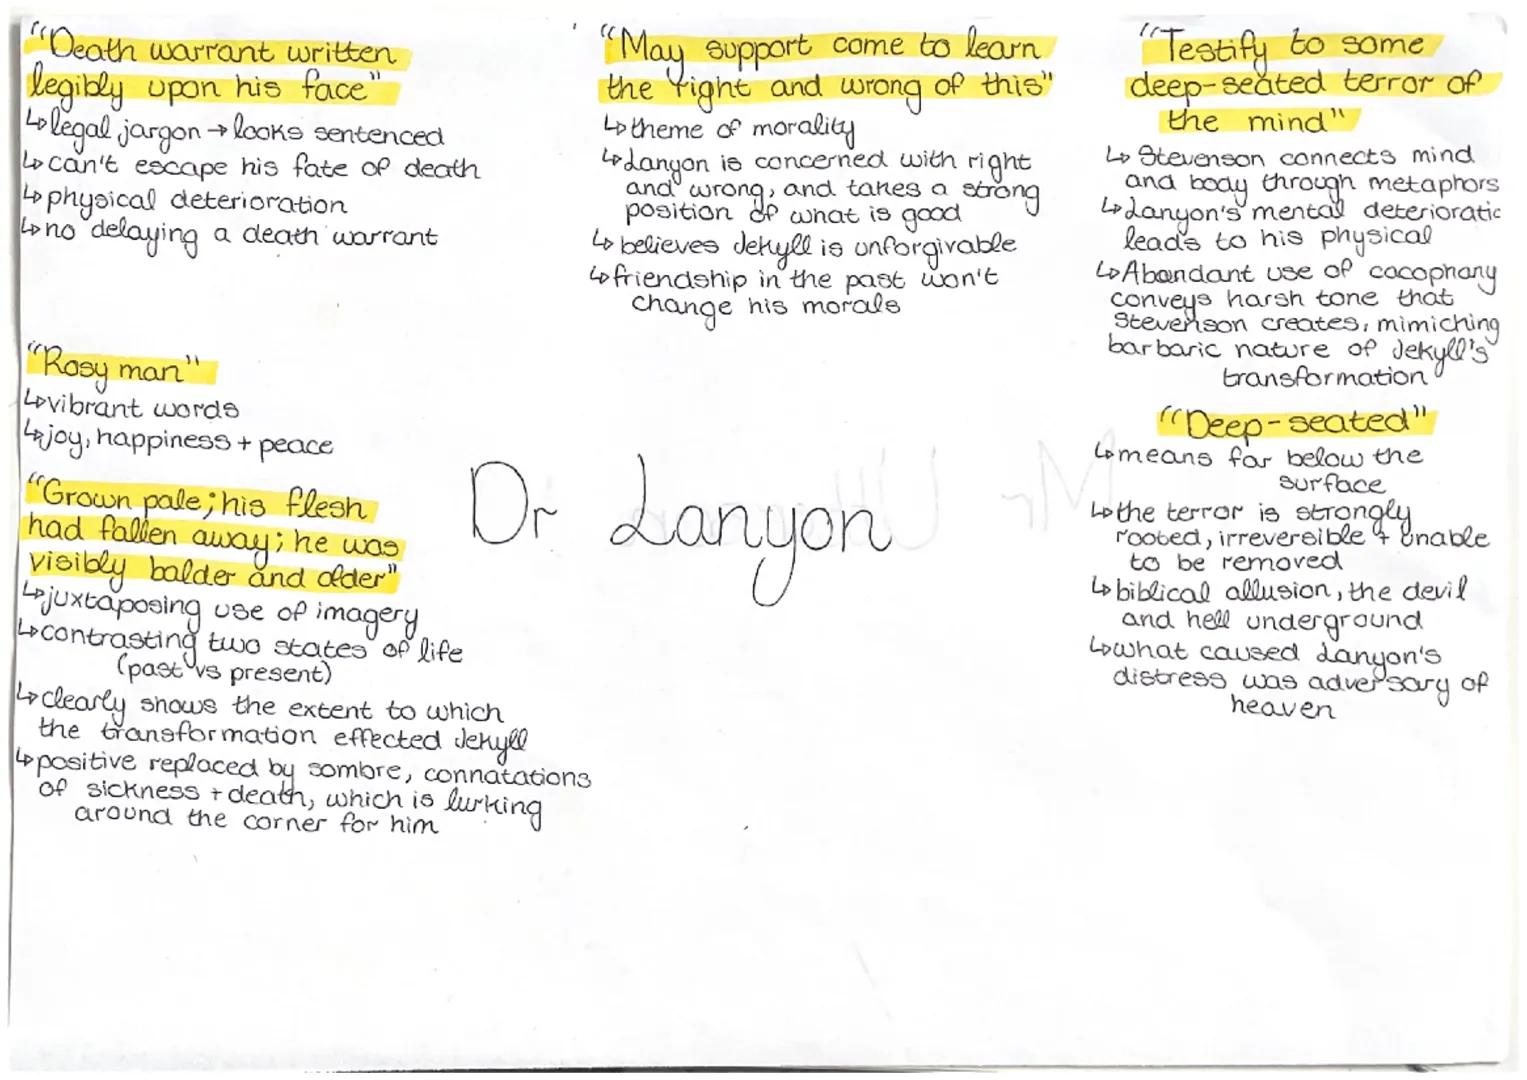 "Death warrant written
legibly upon his face"
↳legal jargon → looks sentenced
↳can't escape his fate of death
↳physical deterioration
↳no delaying a death warrant
"Rosy man"
↳vibrant words
↳joy, happiness + peace
"Grown pale; his flesh
had fallen away; he was
visibly balder and older"
↳juxtaposing use of imagery
↳contrasting two states of life
(past vs present)
↳clearly shows the extent to which
the transformation effected Jekyll
↳positive replaced by sombre, connatations
of sickness + death, which is lurking
around the corner for him
"May support come to learn
the right and wrong of this"
↳theme of morality
↳Lanyon is concerned with right
and wrong, and takes a strong
position of what is good
↳believes Jekyll is unforgivable
↳friendship in the past won't
change his morals
Dr Lanyon
"Testify to some
deep-seated terror of
the mind"
↳Stevenson connects mind
and body through metaphors
↳Lanyon's mental deterioratic
leads to his physical
↳Abandant use of cacophany
conveys harsh tone that
Stevenson creates, mimiching
barbaric nature of Jekyll's
transformation
"Deep-seated"
↳means far below the
surface
↳the terror is strongly
rooted, irreversible + unable
to be removed
↳biblical allusion, the devil
and hell underground
↳what caused Lanyon's
distress was adversary of
heaven